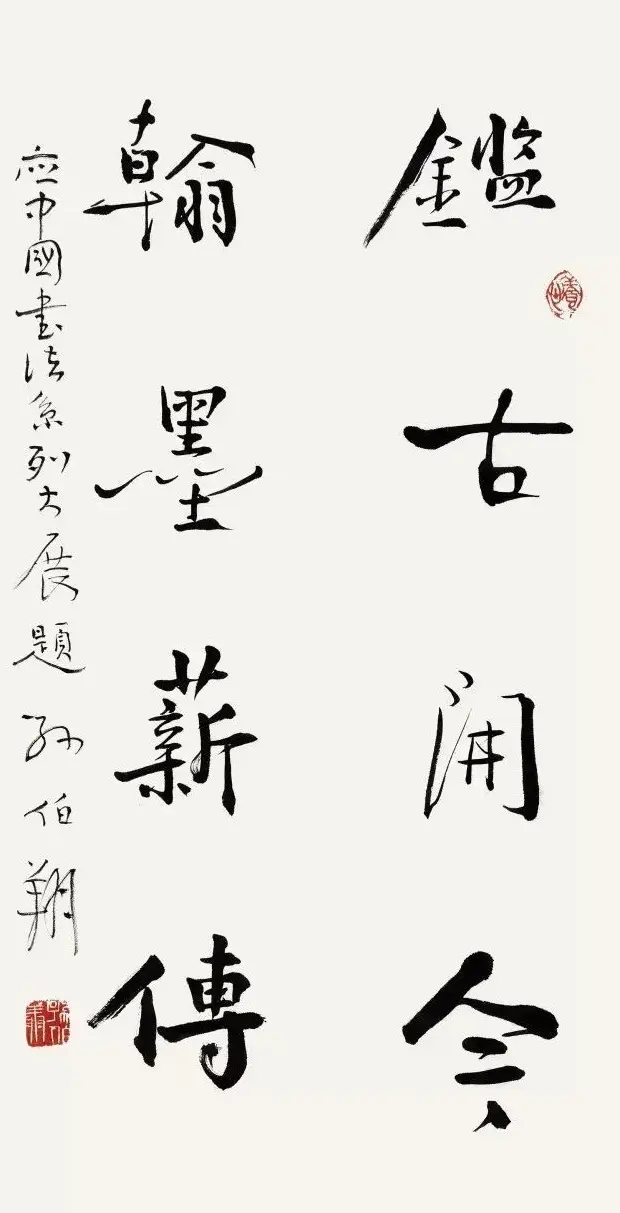 鑑古開今
翰墨薪傳
應中國書法系列大展題 孫伯翔